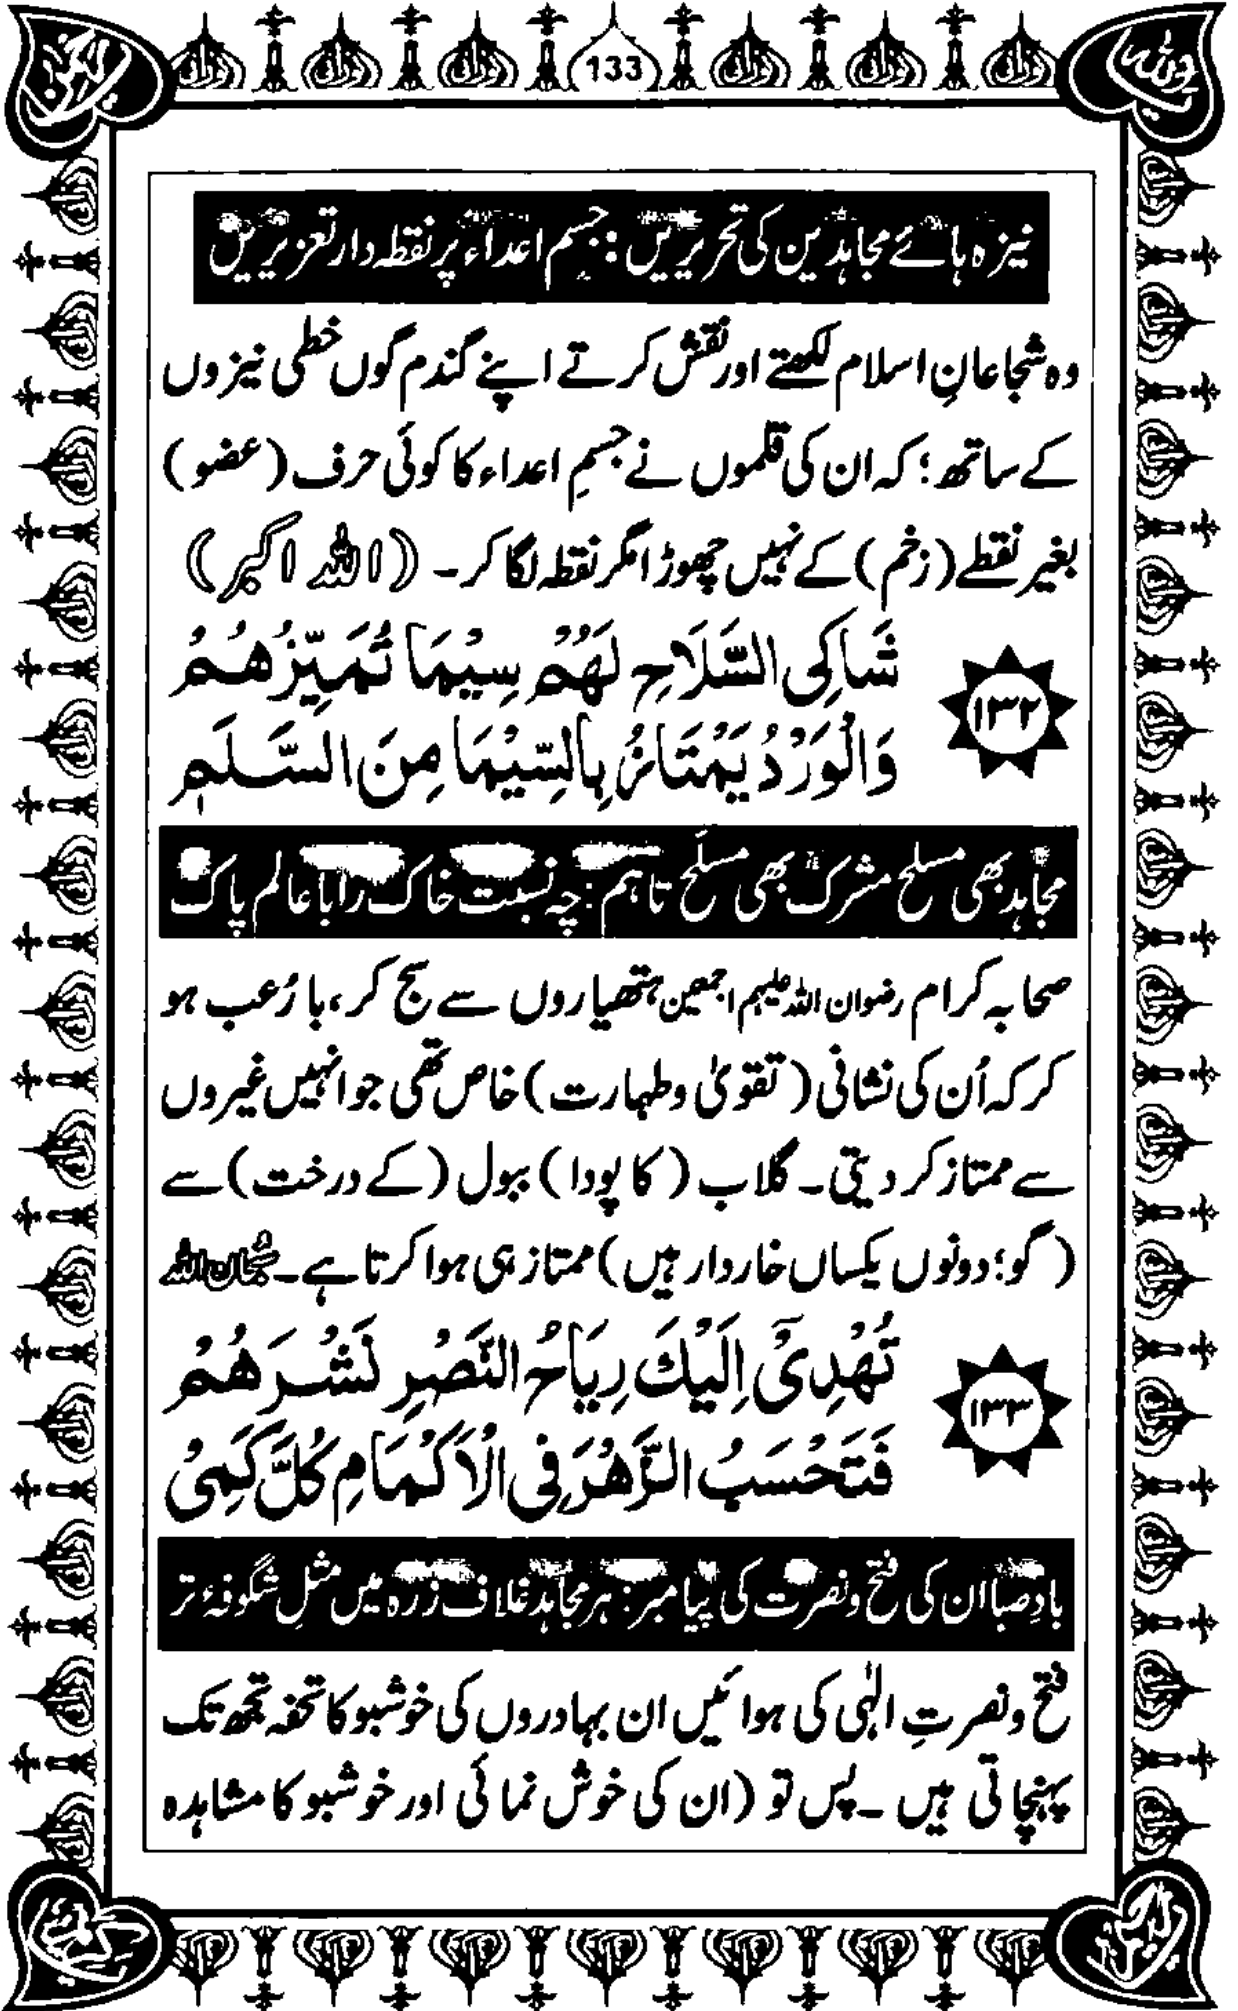 133
نیزہ ہائے مجاہدین کی تحریریں : جسمِ اعداء پر نقطہ دار تعزیریں
وہ شجاعانِ اسلام لکھتے اور نقش کرتے اپنے گندم گوں خطی نیزوں
کے ساتھ ؛ کہ ان کی قلموں نے جسمِ اعداء کا کوئی حرف (عضو)
بغیر نقطے (زخم) کے نہیں چھوڑا مگر نقطہ لگا کر۔ (اللہ اکبر)
شَاكِی السَّلَاحِ لَهُمْ سِيْمَا تُمَيِّزُهُمُ
۱۳۲
وَالْوَرْدُ يَمْتَازُ بِالسِّيْمَا مِنَ السَّلَمِ
مجاہد بھی مسلح مشرک بھی مسلّح تاہم : چہ نسبت خاک را با عالم پاک
صحابہ کرام رضوان اللہ علیہم اجمعین ہتھیاروں سے سج کر، بارُعب ہو
کر کہ اُن کی نشانی (تقویٰ وطہارت) خاص تھی جو انہیں غیروں
سے ممتاز کر دیتی۔ گلاب (کا پودا) ببول (کے درخت) سے
(گو؛ دونوں یکساں خاردار ہیں) ممتاز ہی ہوا کرتا ہے۔ سُبحان اللہ
تُهْدِیْ اِلَيْكَ رِيَاحُ النَّصْرِ نَشْرَهُمُ
۱۳۳
فَتَحْسَبُ الزَّهْرَ فِی الْاَكْمَامِ كُلَّ كَمِیْ
بادِ صبا ان کی فتح و نصرت کی پیامبر : ہر مجاہد غلاف زرہ میں مثلِ شگوفۂ تر
فتح و نصرتِ الٰہی کی ہوائیں ان بہادروں کی خوشبو کا تحفہ تجھ تک
پہنچاتی ہیں ۔ پس تو (ان کی خوش نمائی اور خوشبو کا مشاہدہ